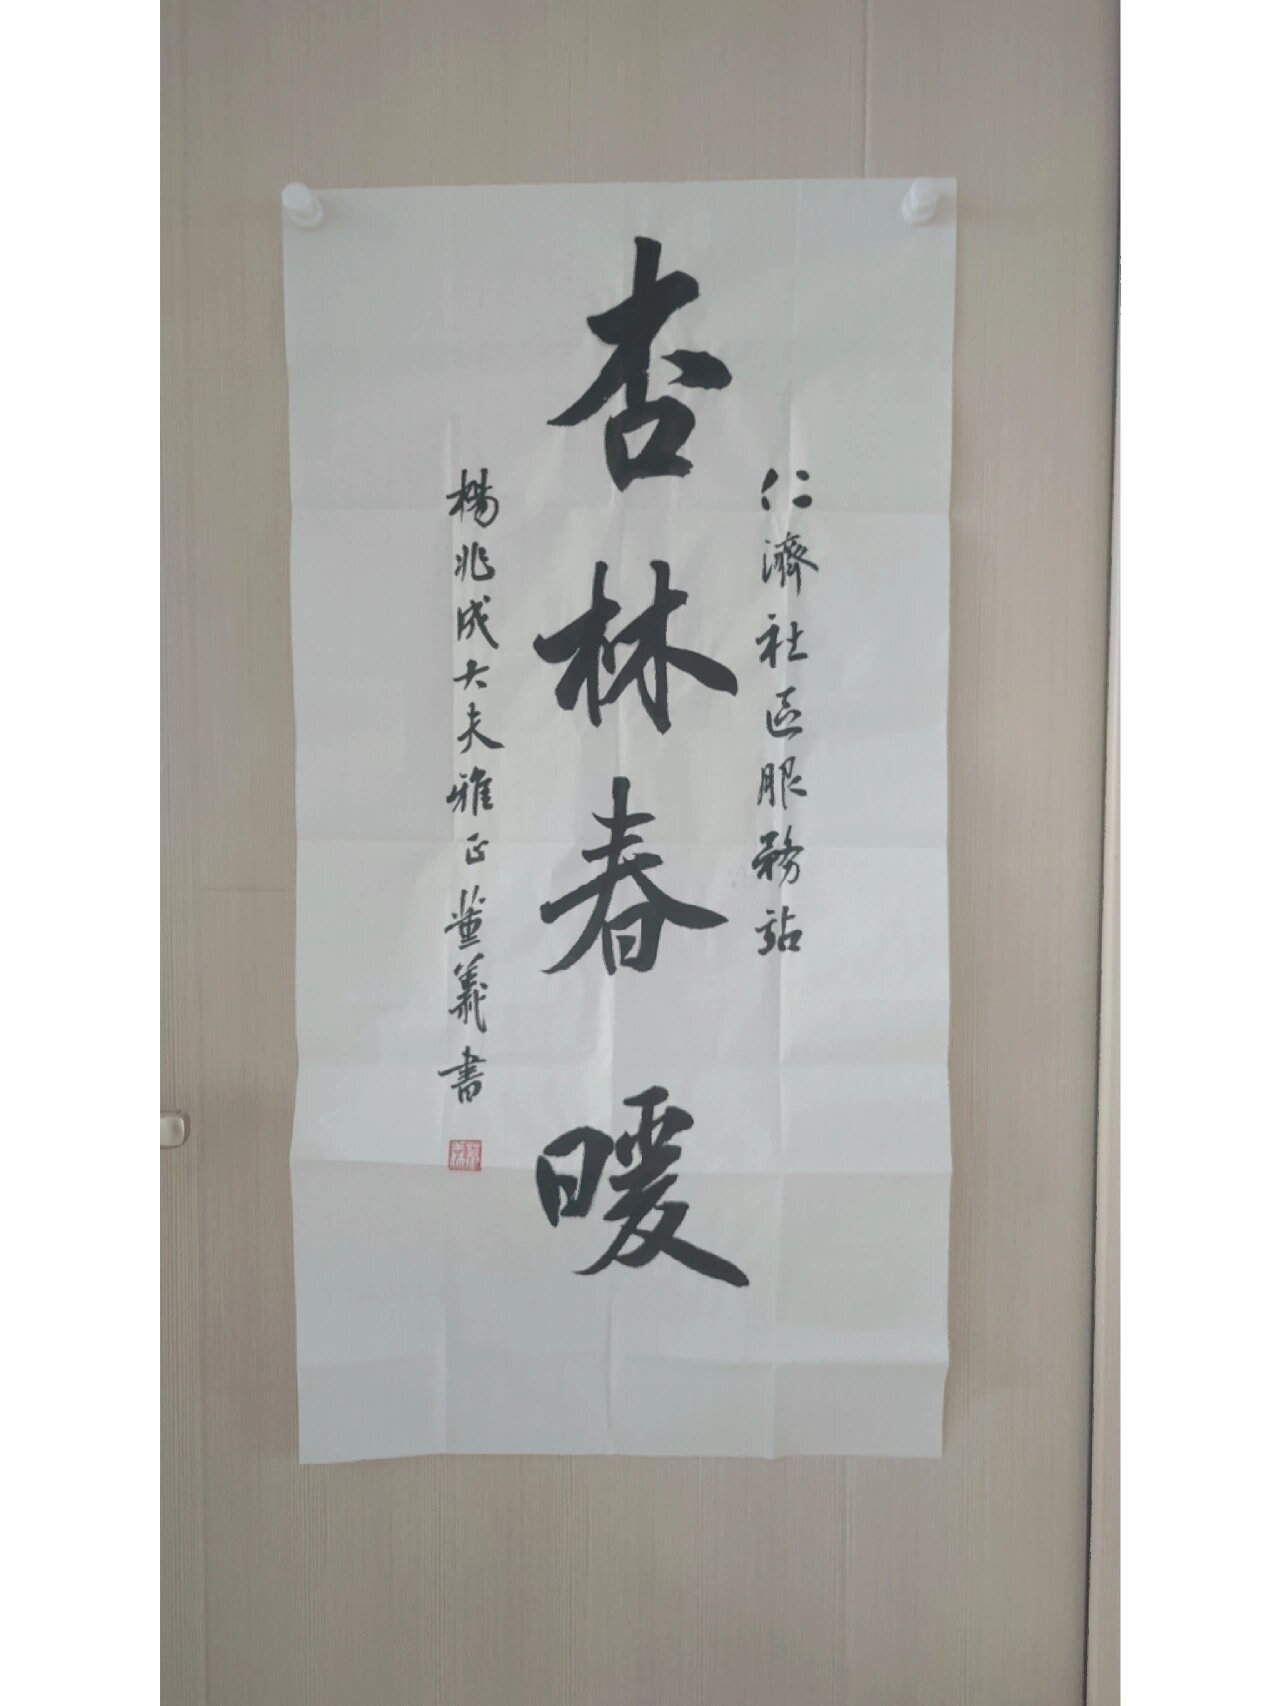 仁濟社区服務站
杏林春暖
楊兆成大夫雅正董義書